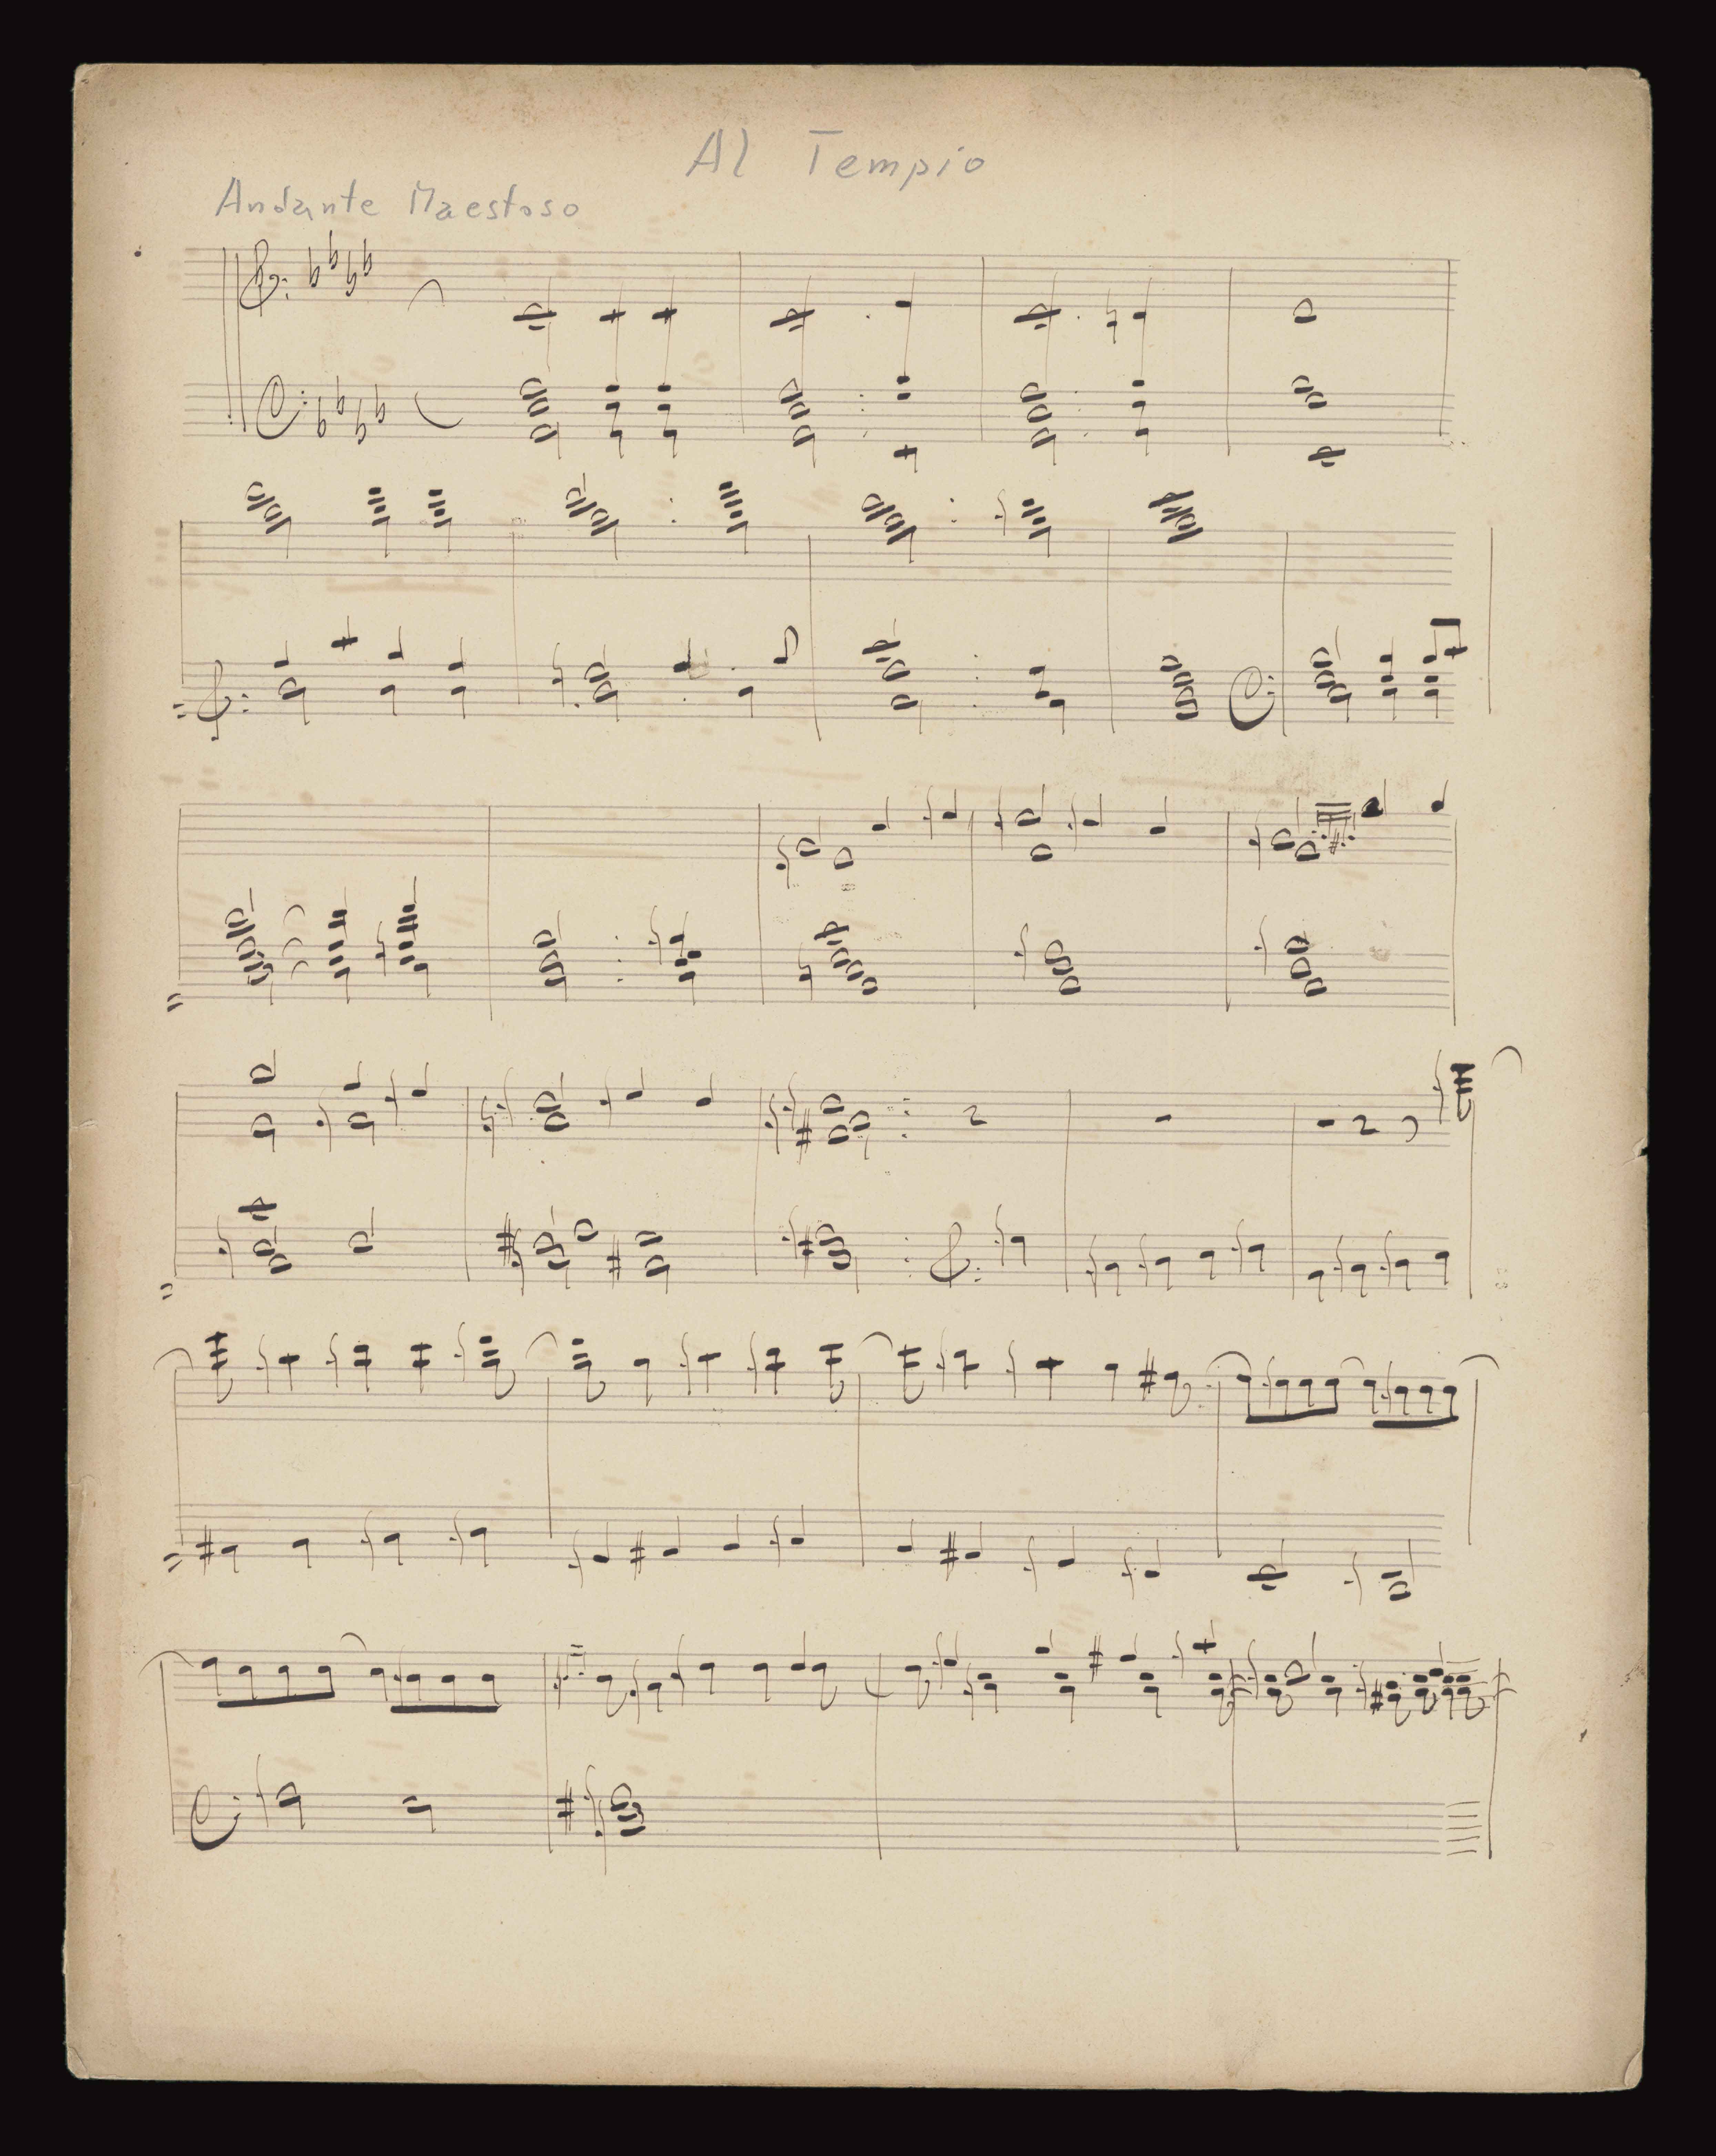 Al Tempio
Andante Maestoso